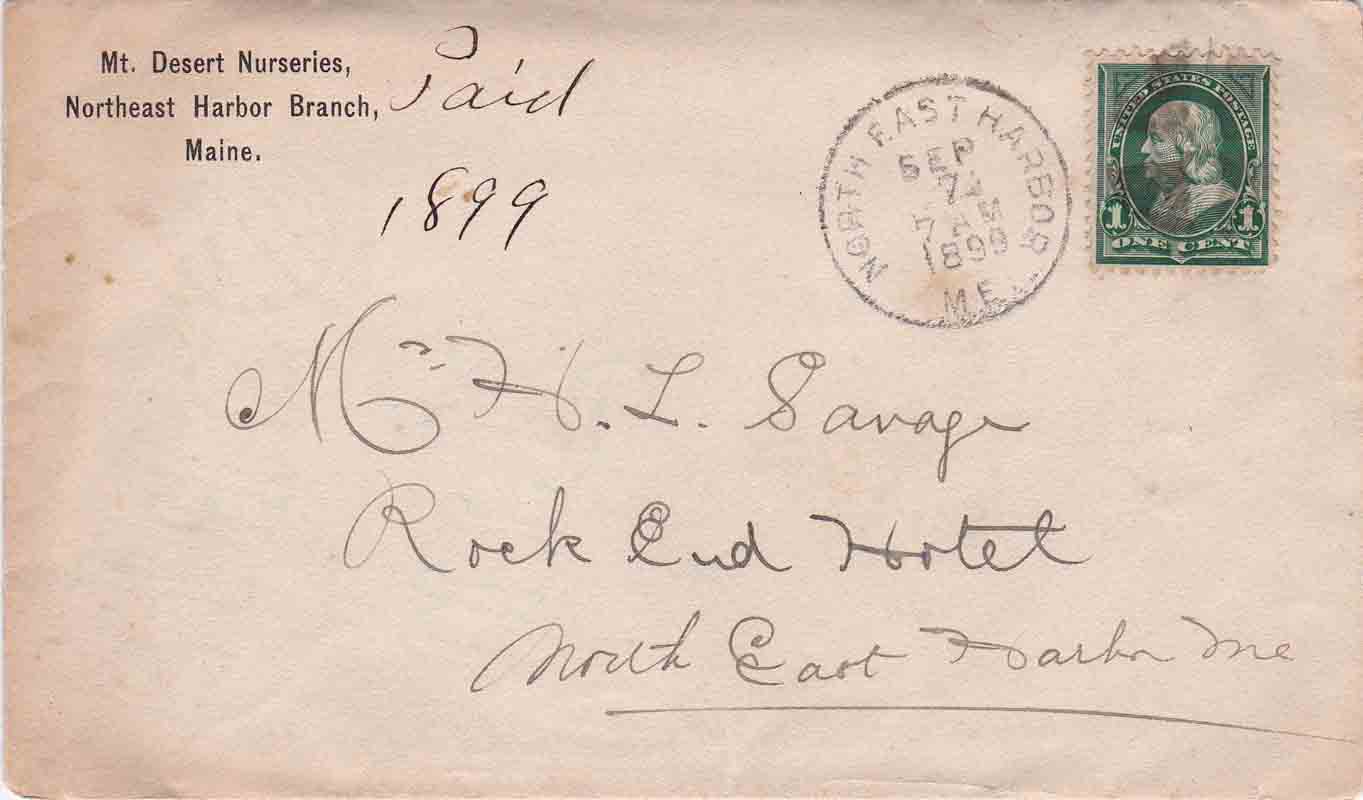 Mt. Desert Nurseries,
Northeast Harbor Branch,
Maine.
Paid
1899
NORTH EAST HARBOR
SEP
7
7 AM
1899
ME.
UNITED STATES POSTAGE
1 1
ONE CENT
Mr H. L. Savage
Rock End Hotel
North East Harbor Me